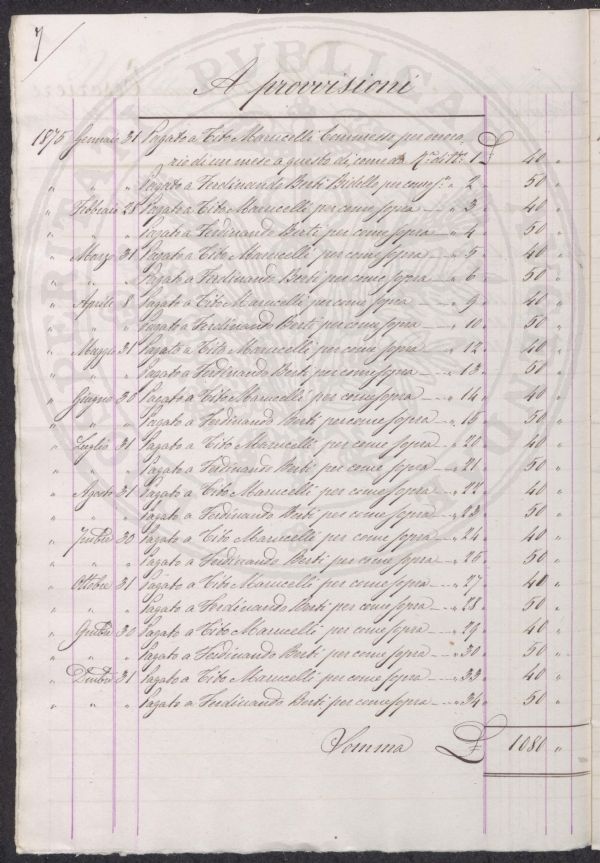 7
A provvisioni
1875 Gennaio 31 Pagato a Tito Marucelli Commesso per onora
rio di un mese a questo dì come da 1 £ 40 "
" " " Pagato a Ferdinando Berti Bidello per come s.a " 2 " 50 "
" Febbraio 28 Pagato a Tito Marucelli per come sopra " 3 " 40 "
" " " Pagato a Ferdinando Berti per come sopra " 4 " 50 "
" Marzo 31 Pagato a Tito Marucelli per come sopra " 5 " 40 "
" " " Pagato a Ferdinando Berti per come sopra " 6 " 50 "
" Aprile 8 Pagato a Tito Marucelli per come sopra " 9 " 40 "
" " " Pagato a Ferdinando Berti per come sopra " 10 " 50 "
" Maggio 31 Pagato a Tito Marucelli per come sopra " 12 " 40 "
" " " Pagato a Ferdinando Berti per come sopra " 13 " 50 "
" Giugno 30 Pagato a Tito Marucelli per come sopra " 14 " 40 "
" " " Pagato a Ferdinando Berti per come sopra " 15 " 50 "
" Luglio 31 Pagato a Tito Marucelli per come sopra " 20 " 40 "
" " " Pagato a Ferdinando Berti per come sopra " 21 " 50 "
" Agosto 31 Pagato a Tito Marucelli per come sopra " 22 " 40 "
" " " Pagato a Ferdinando Berti per come sopra " 23 " 50 "
" 7mbre 30 Pagato a Tito Marucelli per come sopra " 24 " 40 "
" " " Pagato a Ferdinando Berti per come sopra " 26 " 50 "
" Ottobre 31 Pagato a Tito Marucelli per come sopra " 27 " 40 "
" " " Pagato a Ferdinando Berti per come sopra " 28 " 50 "
" 9mbre 30 Pagato a Tito Marucelli per come sopra " 29 " 40 "
" " " Pagato a Ferdinando Berti per come sopra " 30 " 50 "
" Dmbre 31 Pagato a Tito Marucelli per come sopra " 33 " 40 "
" " " Pagato a Ferdinando Berti per come sopra " 34 " 50 "
Somma £ 1080 "